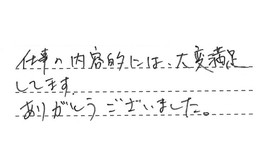 仕事の内容的には、大変満足
してます。
ありがとうございました。